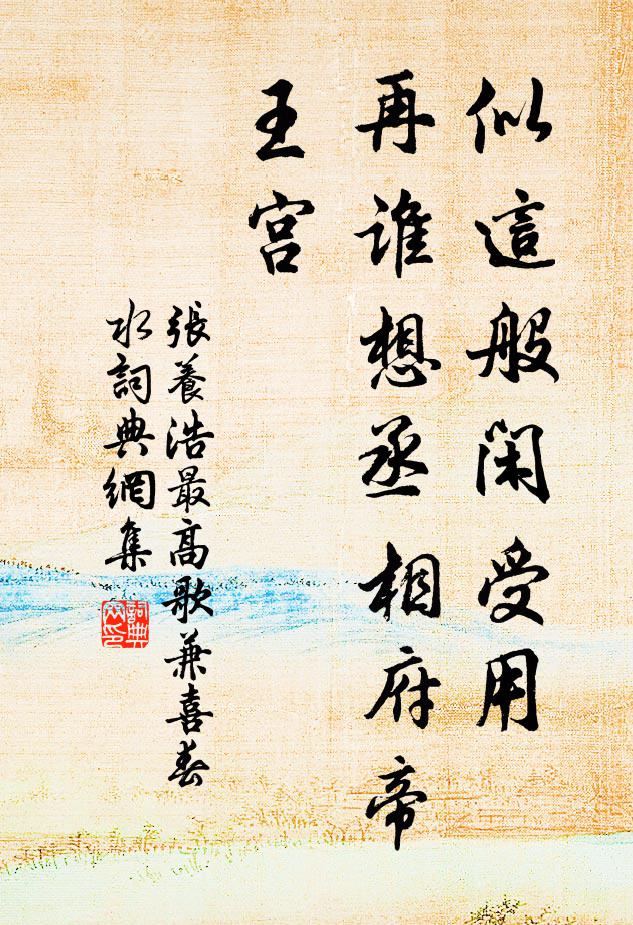 似這般閑受用
再誰想丞相府帝
王宮
張養浩最高歌兼喜春
水詞典網集
詞典
网印